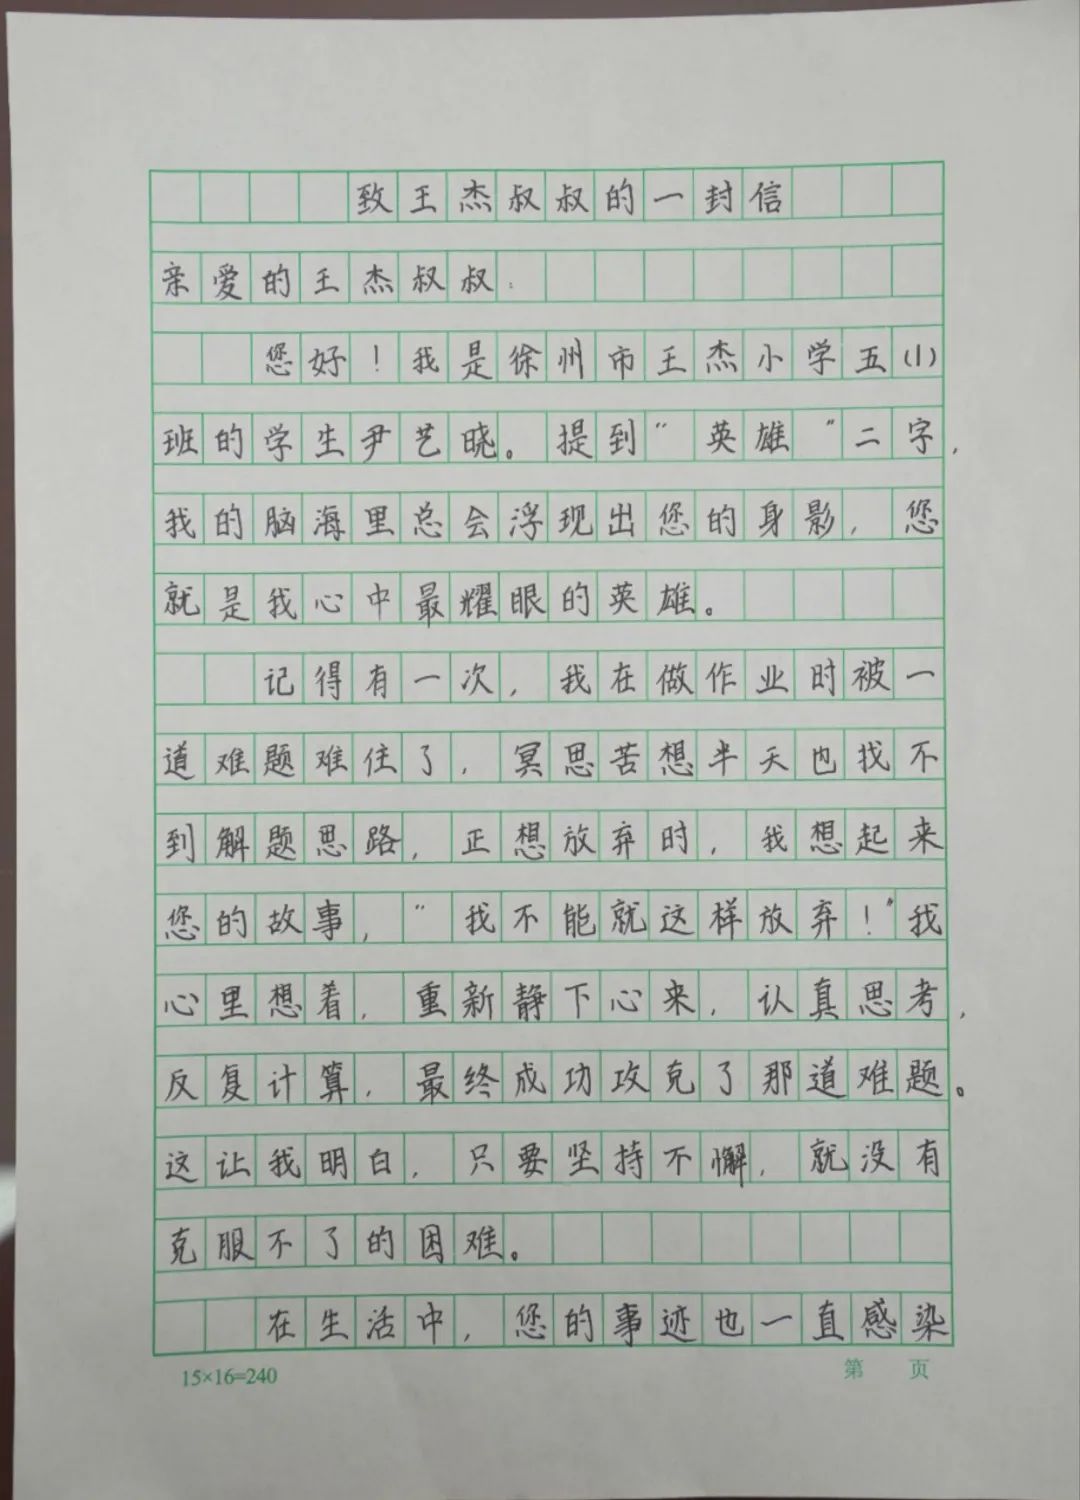 致王杰叔叔的一封信
亲爱的王杰叔叔：
您好！我是徐州市王杰小学五(1)
班的学生尹艺晓。提到“英雄”二字，
我的脑海里总会浮现出您的身影，您
就是我心中最耀眼的英雄。
记得有一次，我在做作业时被一
道难题难住了，冥思苦想半天也找不
到解题思路，正想放弃时，我想起来
您的故事，“我不能就这样放弃！”我
心里想着，重新静下心来，认真思考，
反复计算，最终成功攻克了那道难题。
这让我明白，只要坚持不懈，就没有
克服不了的困难。
在生活中，您的事迹也一直感染
15×16=240 第 页